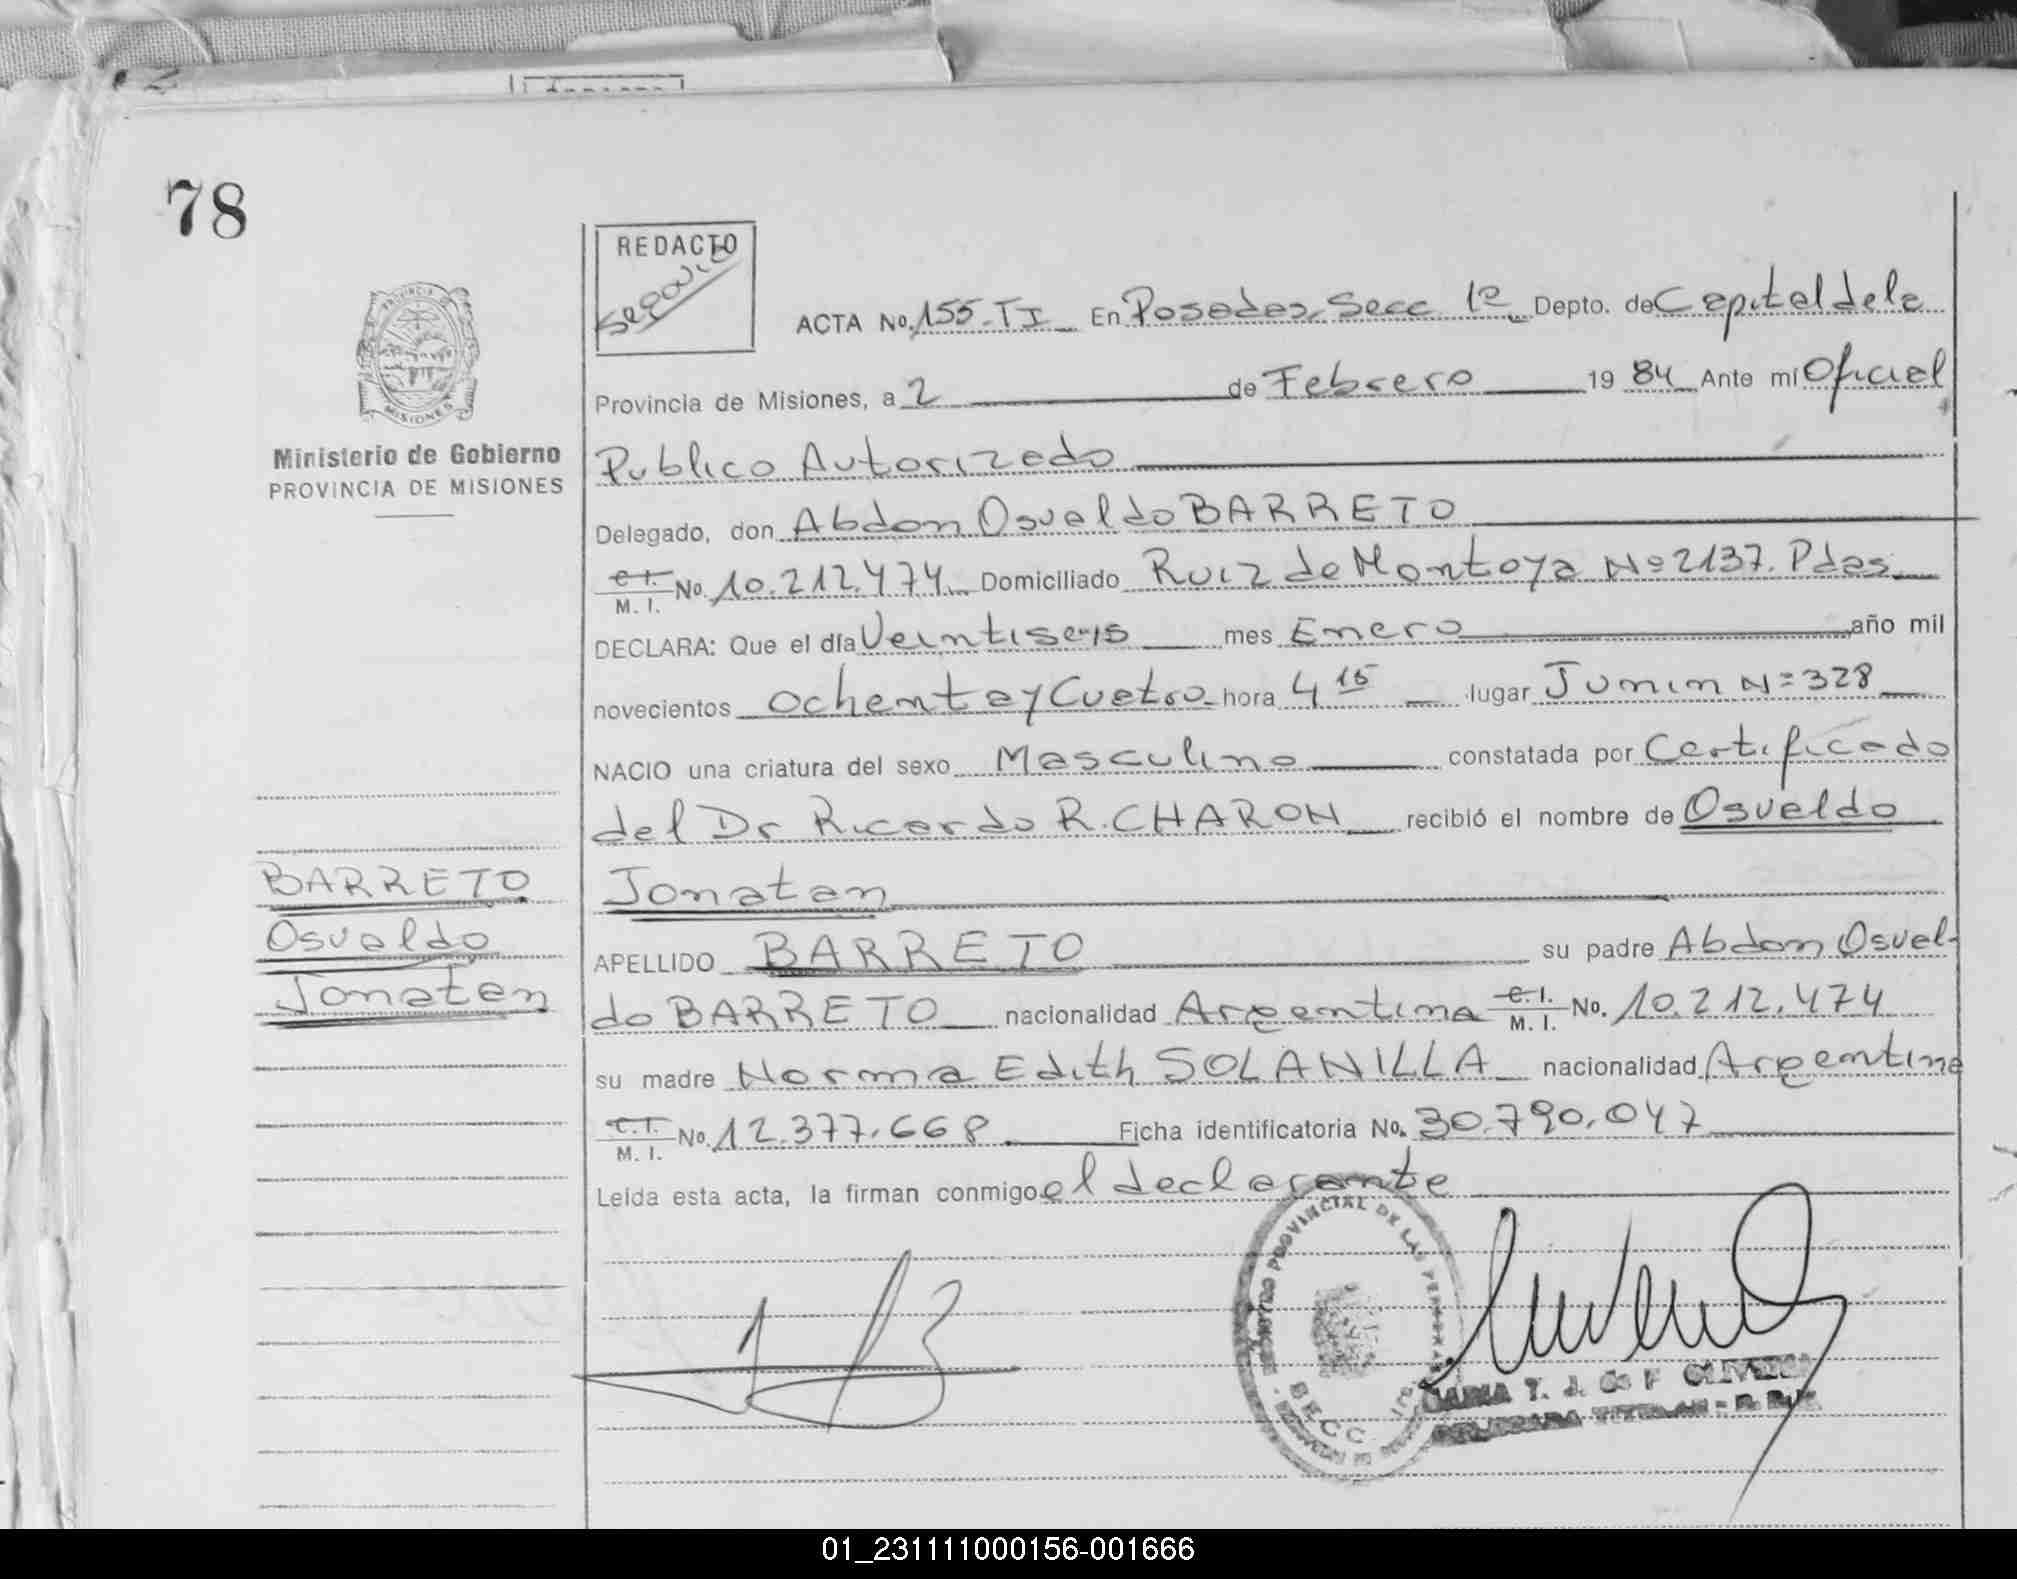 78
REDACTO
PROVINCIA DE
MISIONES
Ministerio de Gobierno
PROVINCIA DE MISIONES
ACTA No. 155-TI En Posadas, Secc 1º Depto. de Capital de la
Provincia de Misiones, a 2 de Febrero 19 84 Ante mí Oficial
Publico Autorizado
Delegado, don Abdon Osvaldo BARRETO
C.I. M. I. No. 10.212.474 Domiciliado Ruiz de Montoya Nº 2137. Pdas
DECLARA: Que el día Veintiseis mes Enero año mil
novecientos ochenta y Cuatro hora 4 15 lugar Junin Nº 328
NACIO una criatura del sexo Masculino constatada por Certificado
del Dr Ricardo R. CHARON recibió el nombre de Osvaldo
Jonatan
APELLIDO BARRETO su padre Abdon Osval-
do BARRETO nacionalidad Argentina C.I. M. I. No. 10.212.474
su madre Norma Edith SOLANILLA nacionalidad Argentina
C.I. M. I. No. 12.377.668 Ficha identificatoria No. 30.790.047
Leída esta acta, la firman conmigo el declarante
BARRETO
Osvaldo
Jonatan
PROVINCIAL DE LAS PERSONAS
SECC
01_231111000156-001666